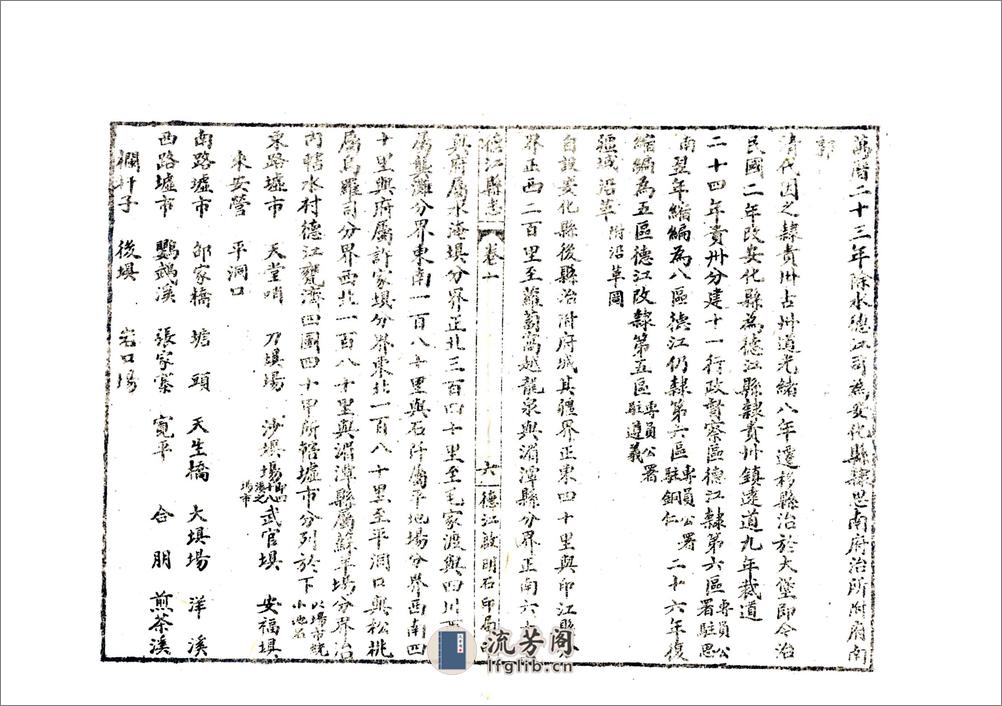 萬曆二十三年除水德江司為安化縣隸思南府治所附府南
郭
清代因之隸貴州古州道光緒八年遷移縣治於大堡即今治
民國二年改安化縣為德江縣隸貴州鎮遠道九年裁道
二十四年貴州分建十一行政督察區德江隸第六區專員公署駐思
南翌年縮編為八區德江仍隸第六區專員公署駐銅仁二十六年復
縮編為五區德江改隸第五區專員公署駐遵義
疆域沿革附沿革圖
自設安化縣後縣治附府城其疆界正東四十里與印江縣分
界正西二百里至蘿蔔窩越龍泉與湄潭縣分界正南六十
德江縣志 卷一 六 德江啟明石印局印
與府屬水淹壩分界正北三百四十里至毛家渡與四川酉
屬龔灘分界東南一百八十里與石阡屬平地場分界西南四
十里與府屬許家壩分界東北一百八十里至平洞口與松桃
屬烏羅司分界西北一百八十里與湄潭縣屬蘇羊場分界治
內轄水村德江甕濟四圖四十甲所轄墟市分列於下以場市統小地名
東路墟市 天堂哨 刀壩場 沙壩場 武官壩 安福壩
來安營 平洞口
南路墟市 邵家橋 塘頭 天生橋 大壩場 洋溪
西路墟市 鸚鵡溪 張家寨 寬平 合朋 煎茶溪
欄杆子 後壩 宅口場
流芳阁
lfglib.cn